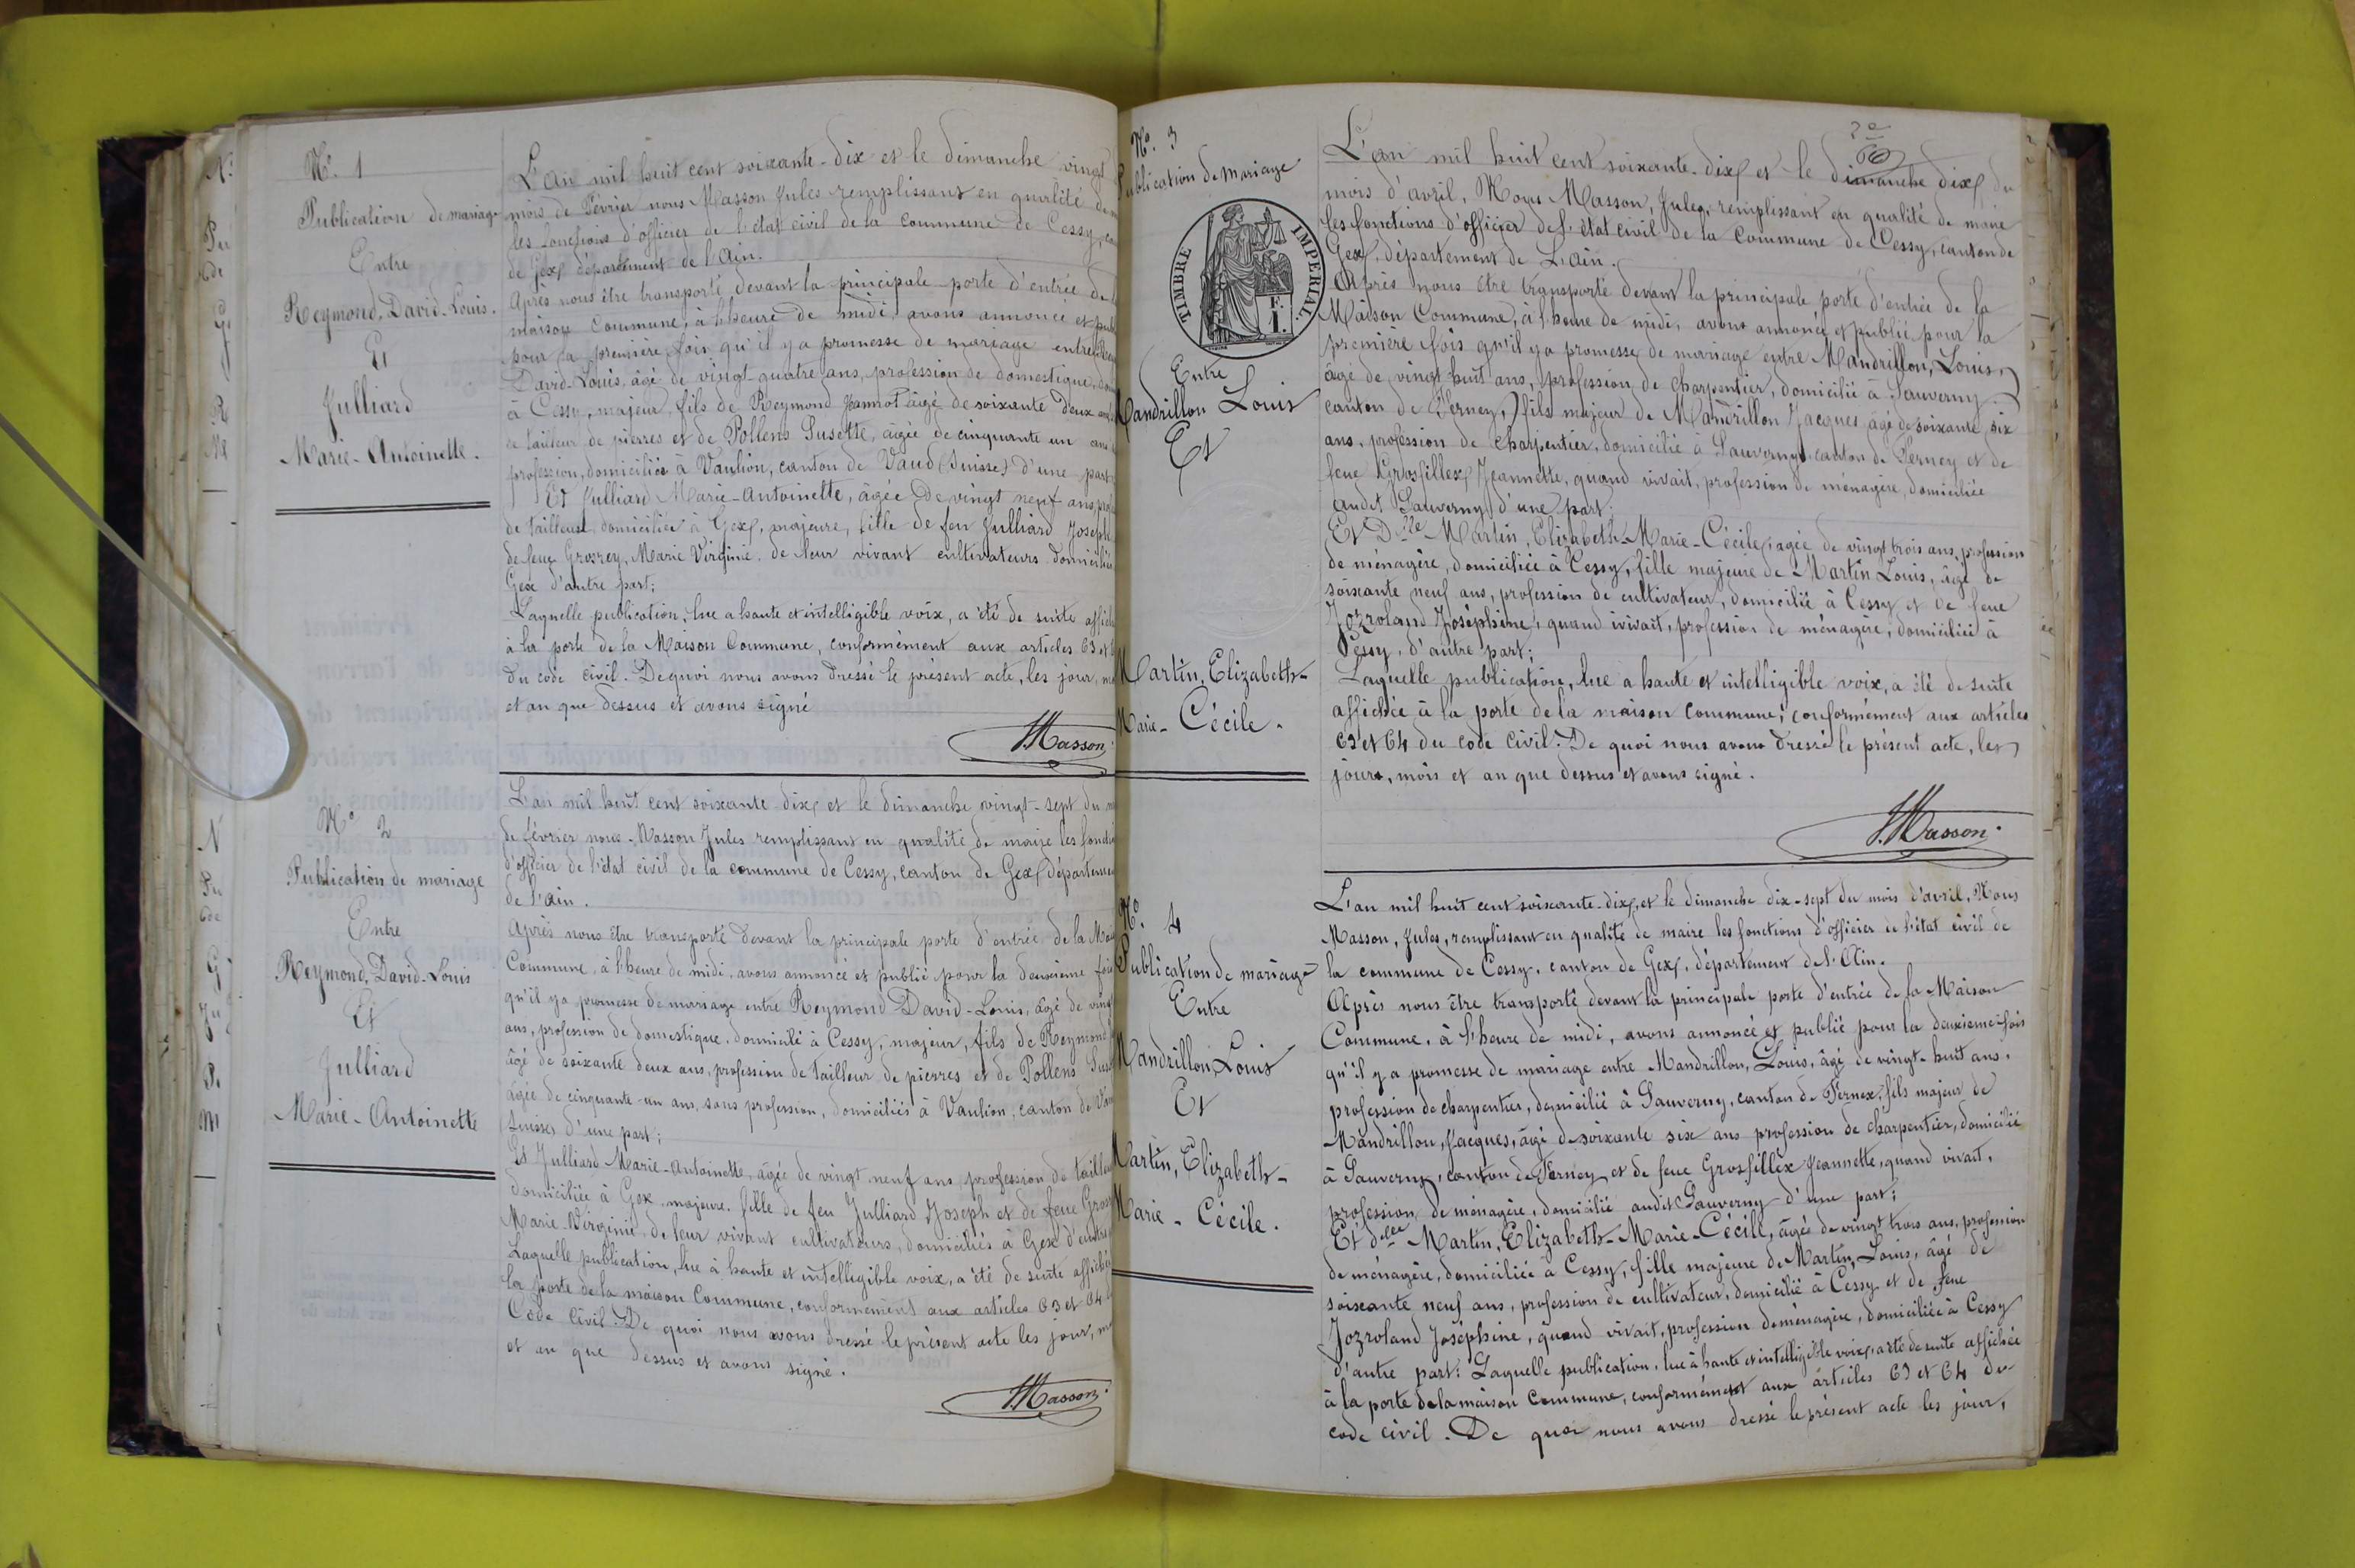 No. 1
Publication de mariage
Entre
Reymond, David-Louis.
Et
Julliard
Marie-Antoinette.
L'an mil huit cent soixante-dix et le dimanche vingt
mois de Février nous Masson Jules remplissant en qualité de
les fonctions d'officier de l'état civil de la commune de Cessy,
de Gex département de l'Ain.
Après nous être transporté devant la principale porte d'entrée de
maison Commune, à l'heure de midi, avons annoncé et
pour la première fois qu'il y a promesse de mariage entre
David-Louis, âgé de vingt-quatre ans, profession de domestique,
à Cessy, majeur, fils de Reymond Jeannot âgé de soixante deux
de tailleur de pierres et de Pollens Susette, âgée de cinquante un ans
profession, domiciliés à Vaulion, canton de Vaud (Suisse) d'une part
Et Julliard Marie-Antoinette, âgée de vingt neuf ans,
de tailleuse domiciliée à Gex, majeure, fille de feu Julliard Joseph
de feue Grosrey, Marie Virginie, de leur vivant cultivateurs domiciliés
Gex d'autre part;
Laquelle publication, lue a haute et intelligible voix, a été de suite
à la porte de la Maison Commune, conformément aux articles 63 et
du code civil. De quoi nous avons dressé le présent acte, les jour,
et an que dessus et avons signé
J. Masson
No 2
Publication de mariage
Entre
Reymond, David-Louis
Et
Julliard
Marie-Antoinette
L'an mil huit cent soixante-dix, et le dimanche vingt-sept du
de février nous Masson Jules remplissant en qualité de maire les
d'officier de l'état civil de la commune de Cessy, canton de Gex,
de l'ain.
Après nous être transporté devant la principale porte d'entrée de la
Commune, à l'heure de midi, avons annoncé et publié pour la deuxième fois
qu'il y a promesse de mariage entre Reymond David-Louis, âgé de
ans, profession de domestique, domicilié à Cessy, majeur, fils de Reymond
âgé de soixante deux ans, profession de tailleur de pierres et de Pollens
âgée de cinquante-un ans, sans profession, domiciliés à Vaulion, canton de
Suisse, d'une part;
Et Julliard Marie-Antoinette, âgée de vingt neuf ans, profession de
domiciliée à Gex, majeure, fille de feu Julliard Joseph et de feue
Marie-Virginie, de leur vivant cultivateurs, domiciliés à Gex
Laquelle publication, lue à haute et intelligible voix, a été de suite
la porte de la maison Commune, conformément aux articles 63 et 64
Code Civil. De quoi nous avons dressé le présent acte les jour,
et an que dessus et avons signé.
J. Masson
No. 3
Publication de mariage
TIMBRE IMPÉRIAL
1 F.
Entre
Mandrillon Louis
Et
Martin, Elizabeth-
Marie-Cécile.
L'an mil huit cent soixante-dix, et le dimanche dix, du
mois d'avril, Nous Masson, Jules, remplissant en qualité de maire
les fonctions d'officier de l'état civil de la Commune de Cessy, canton de
Gex, département de L'ain.
Après nous être transporté devant la principale porte d'entrée de la
Maison Commune, à l'heure de midi, avons annoncé et publié pour la
première fois qu'il y a promesse de mariage entre Mandrillon, Louis,
âgé de vingt huit ans, profession de charpentier, domicilié à Sauverny
canton de Ferney, fils majeur de Mandrillon Jacques âgé de soixante six
ans, profession de charpentier, domicilié à Sauverny canton de Ferney et de
feue Grosfillex, Jeannette, quand vivait, profession de ménagère, domiciliée
audit Sauverny d'une part;
Et Dlle Martin, Elizabeth-Marie-Cécile, âgée de vingt trois ans, profession
de ménagère, domiciliée à Cessy, fille majeure de Martin Louis, âgé de
soixante neuf ans, profession de cultivateur, domicilié à Cessy et de feue
Jozroland Joséphine, quand vivait, profession de ménagère, domiciliée à
Cessy, d'autre part;
Laquelle publication, lue a haute et intelligible voix, a été de suite
affichée à la porte de la maison commune, conformément aux articles
63 et 64 du code civil. De quoi nous avons dressé le présent acte, les
jours, mois et an que dessus et avons signé.
J. Masson
No. 4
Publication de mariage
Entre
Mandrillon, Louis
Et
Martin, Elizabeth-
Marie-Cécile.
L'an mil huit cent soixante-dix, et le dimanche dix-sept du mois d'avril, Nous
Masson, Jules, remplissant en qualité de maire les fonctions d'officier de l'état civil de
la commune de Cessy, canton de Gex, département de l'Ain.
Après nous être transporté devant la principale porte d'entrée de la Maison
Commune, à l'heure de midi, avons annoncé et publié pour la deuxième fois
qu'il y a promesse de mariage entre Mandrillon, Louis, âgé de vingt-huit ans,
profession de charpentier, domicilié à Sauverny, canton de Fernex, fils majeur de
Mandrillon, Jacques, âgé de soixante six ans profession de charpentier, domicilié
à Sauverny, canton de Ferney et de feue Grosfillex Jeannette, quand vivait,
profession de ménagère, domicilié audit Sauverny d'une part;
Et dlle Martin, Elizabeth-Marie-Cécile, âgée de vingt trois ans, profession
de ménagère, domiciliée à Cessy, fille majeure de Martin, Louis, âgé de
soixante neuf ans, profession de cultivateur, domicilié à Cessy et de feue
Jozroland Joséphine, quand vivait, profession de ménagère, domiciliée à Cessy
d'autre part; Laquelle publication, lue à haute et intelligible voix, a été de suite affichée
à la porte de la maison commune, conformément aux articles 63 et 64 du
code civil. De quoi nous avons dressé le présent acte les jour,